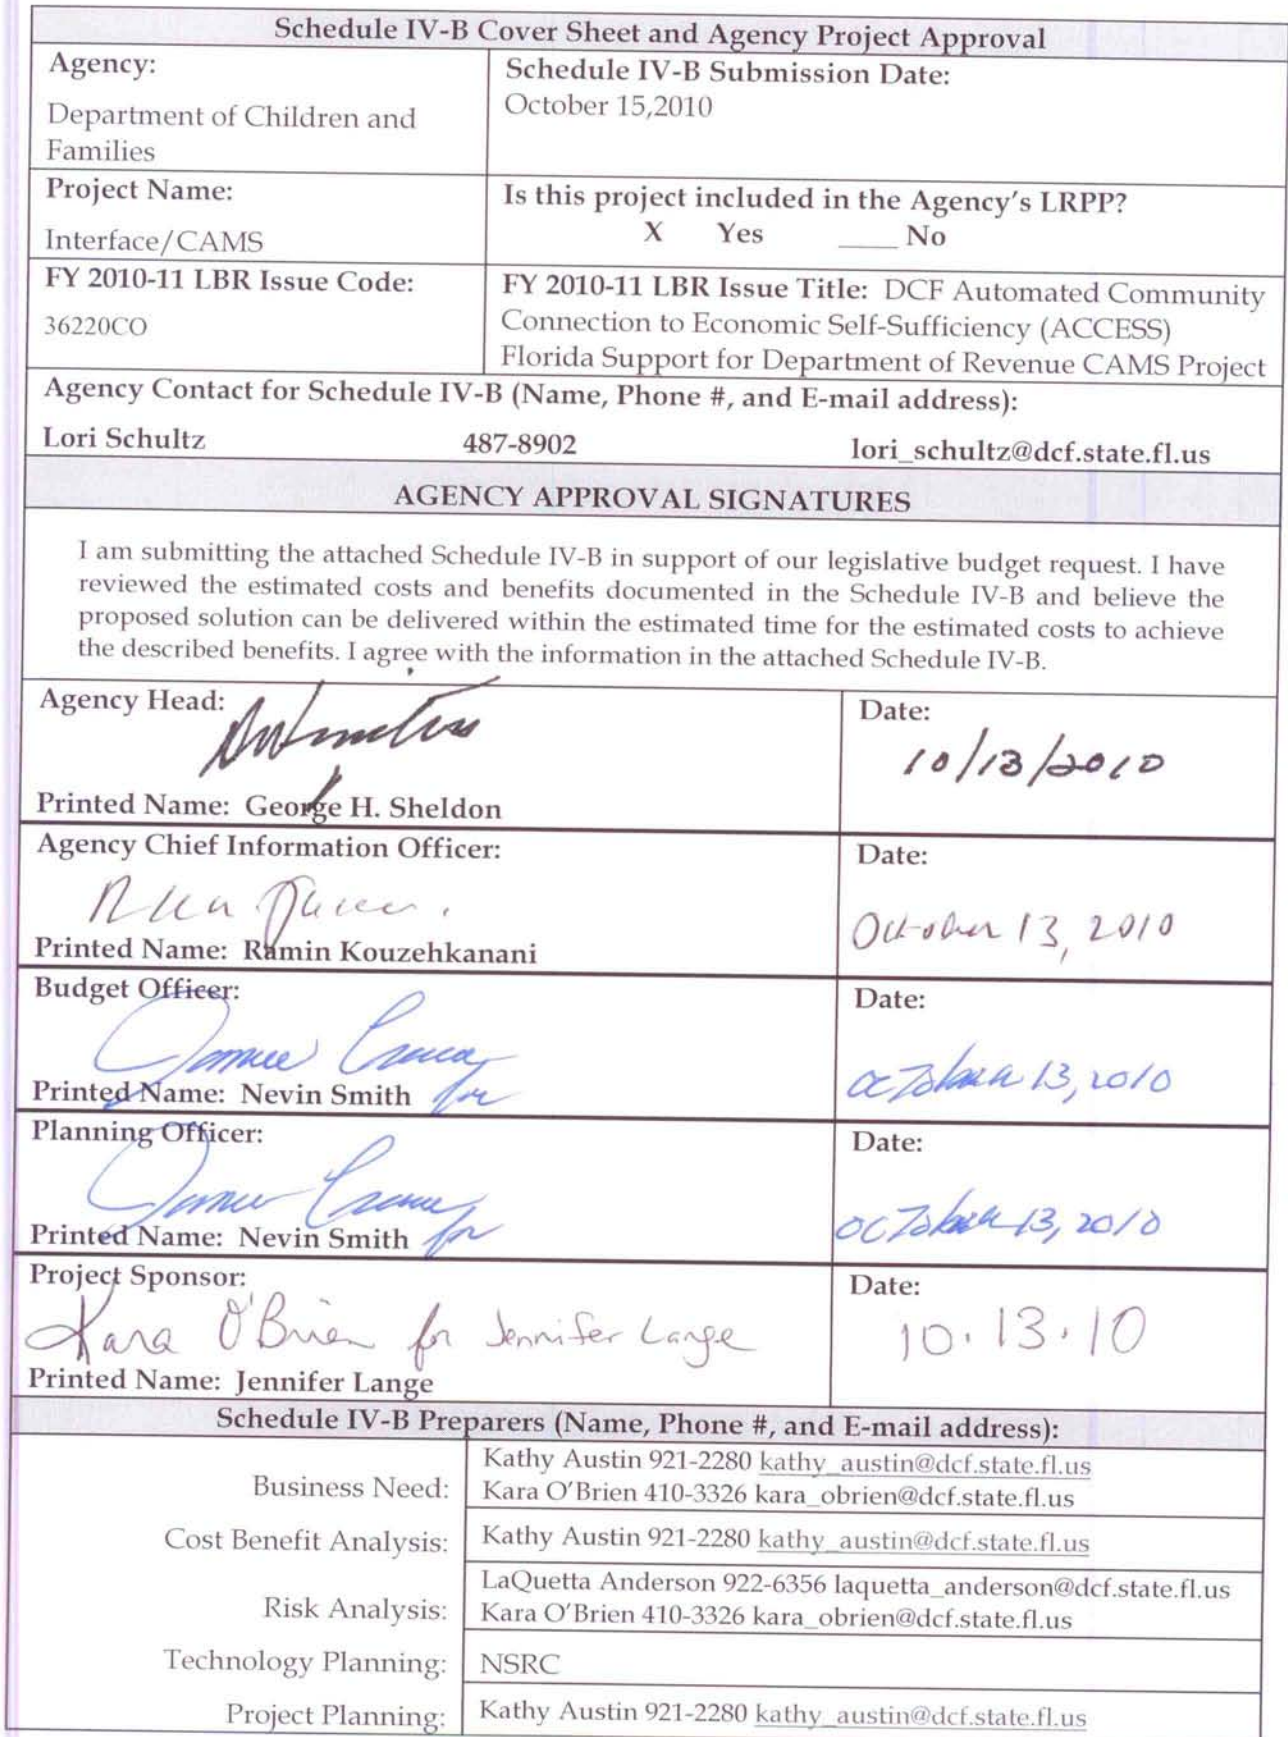 Schedule IV-B Cover Sheet and Agency Project Approval
Agency:
Department of Children and
Families
Schedule IV-B Submission Date:
October 15,2010
Project Name:
Interface/CAMS
Is this project included in the Agency's LRPP?
X Yes ____ No
FY 2010-11 LBR Issue Code:
36220CO
FY 2010-11 LBR Issue Title: DCF Automated Community
Connection to Economic Self-Sufficiency (ACCESS)
Florida Support for Department of Revenue CAMS Project
Agency Contact for Schedule IV-B (Name, Phone #, and E-mail address):
Lori Schultz 487-8902 lori_schultz@dcf.state.fl.us
AGENCY APPROVAL SIGNATURES
I am submitting the attached Schedule IV-B in support of our legislative budget request. I have
reviewed the estimated costs and benefits documented in the Schedule IV-B and believe the
proposed solution can be delivered within the estimated time for the estimated costs to achieve
the described benefits. I agree with the information in the attached Schedule IV-B.
Agency Head:
Printed Name: George H. Sheldon
Date:
10/13/2010
Agency Chief Information Officer:
Printed Name: Ramin Kouzehkanani
Date:
October 13, 2010
Budget Officer:
Printed Name: Nevin Smith for
Date:
October 13, 2010
Planning Officer:
Printed Name: Nevin Smith for
Date:
October 13, 2010
Project Sponsor:
Kara O'Brien for Jennifer Lange
Printed Name: Jennifer Lange
Date:
10.13.10
Schedule IV-B Preparers (Name, Phone #, and E-mail address):
Business Need:
Kathy Austin 921-2280 kathy_austin@dcf.state.fl.us
Kara O'Brien 410-3326 kara_obrien@dcf.state.fl.us
Cost Benefit Analysis:
Kathy Austin 921-2280 kathy_austin@dcf.state.fl.us
Risk Analysis:
LaQuetta Anderson 922-6356 laquetta_anderson@dcf.state.fl.us
Kara O'Brien 410-3326 kara_obrien@dcf.state.fl.us
Technology Planning:
NSRC
Project Planning:
Kathy Austin 921-2280 kathy_austin@dcf.state.fl.us